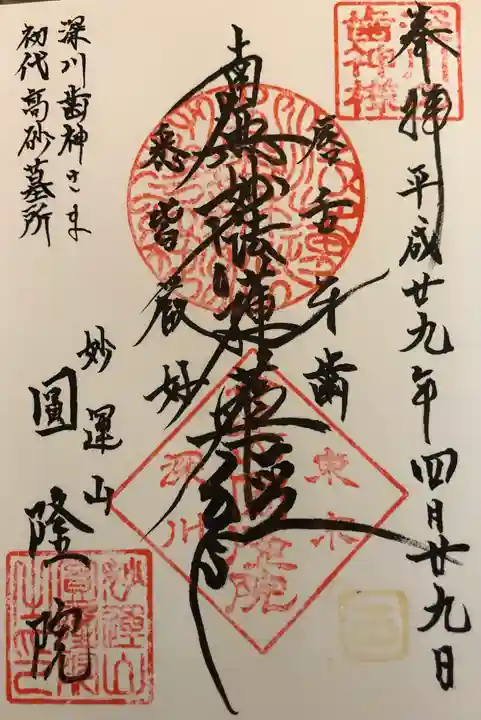 奉拝 平成廿九年四月廿九日
深川歯神様
唇舌牙歯
南無妙法蓮華経
悉皆厳妙
東京
深川
圓隆院
妙運山
圓隆院
深川歯神さま
初代高砂墓所